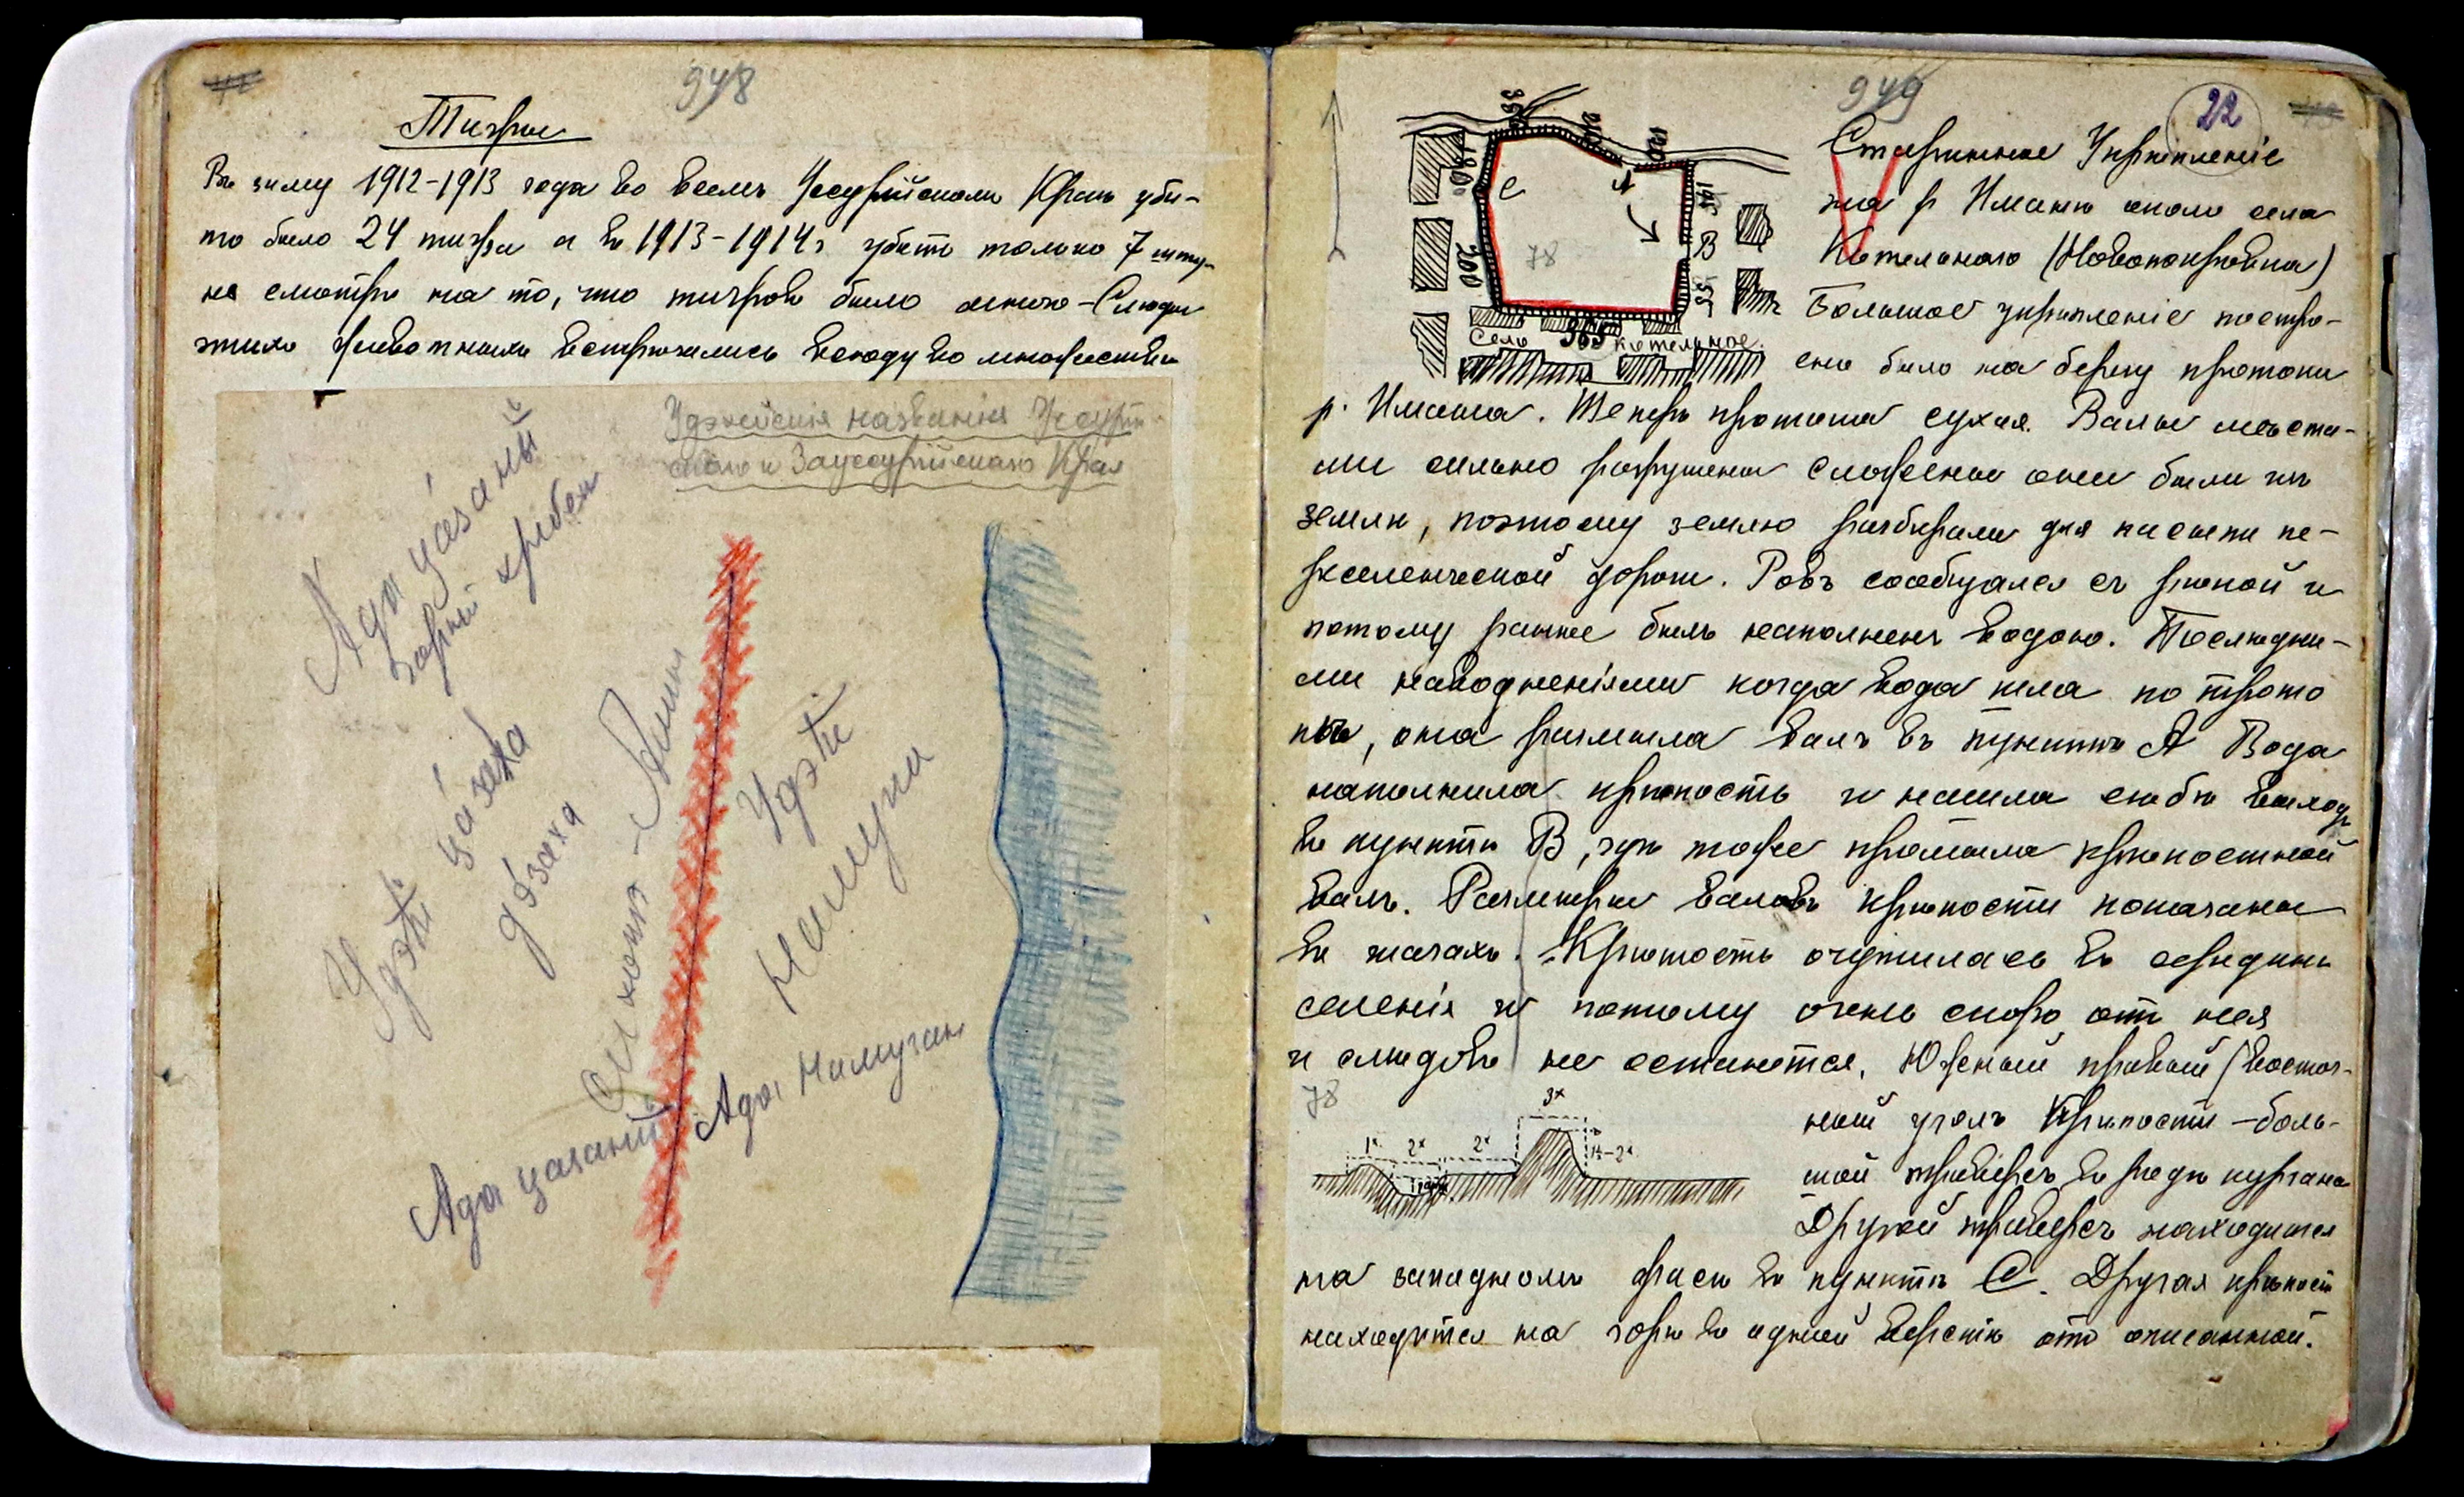 948
Тигры
Въ зиму 1912-1913 года во всемъ Уссурійскомъ Краѣ уби-
то было 24 тигра а въ 1913-1914 г убито только 7 штук
не смотря на то, что тигровъ было много - Слѣды
этихъ животныхъ встрѣчались всюду во множествѣ
Удэхейскія названія Уссурій-
скаго и Зауссурійскаго Края
Ада цазаны
горный хребетъ
Удэhе цазаха
дзаха
Сихотэ-Алинь
Удэhе
Намука
Ада Намузани
Ада цазани
949
22
190
145
B
55
365
200
C
A
78
Село Котельное
Старинное Укрѣпленіе
на р Иманѣ около села
Котельнаго (Новопокровка)
Большое укрѣпленіе постро-
ено было на берегу протоки
р. Имана. Теперь протока сухая. Валы мѣста-
ми сильно разрушены сложены они были изъ
земли, поэтому землю разбирали для насыпи пе-
реселенческой дороги. Ровъ сообщался съ рѣкой и
потому ранѣе былъ наполненъ водою. Послѣдни-
ми наводненіями когда вода шла по прото
кѣ, она размыла валъ въ пунктѣ А Вода
наполнила крѣпость и нашла себѣ выходъ
въ пунктѣ В, гдѣ тоже промыла крѣпостной
валъ. Размѣры валовъ крѣпости показаны
въ шагахъ. Крѣпость очутилась въ серединѣ
селенія и потому очень скоро отъ нея
и слѣдовъ не останется. Южный правый (восточ-
78
3х
1х 2х 2х
ный уголъ Крѣпости - боль-
шой траверсъ въ родѣ кургана
Другой траверсъ находится
на западномъ фасѣ въ пунктѣ С. Другая крѣпость
находится на горѣ въ одной верстѣ отъ описанной.